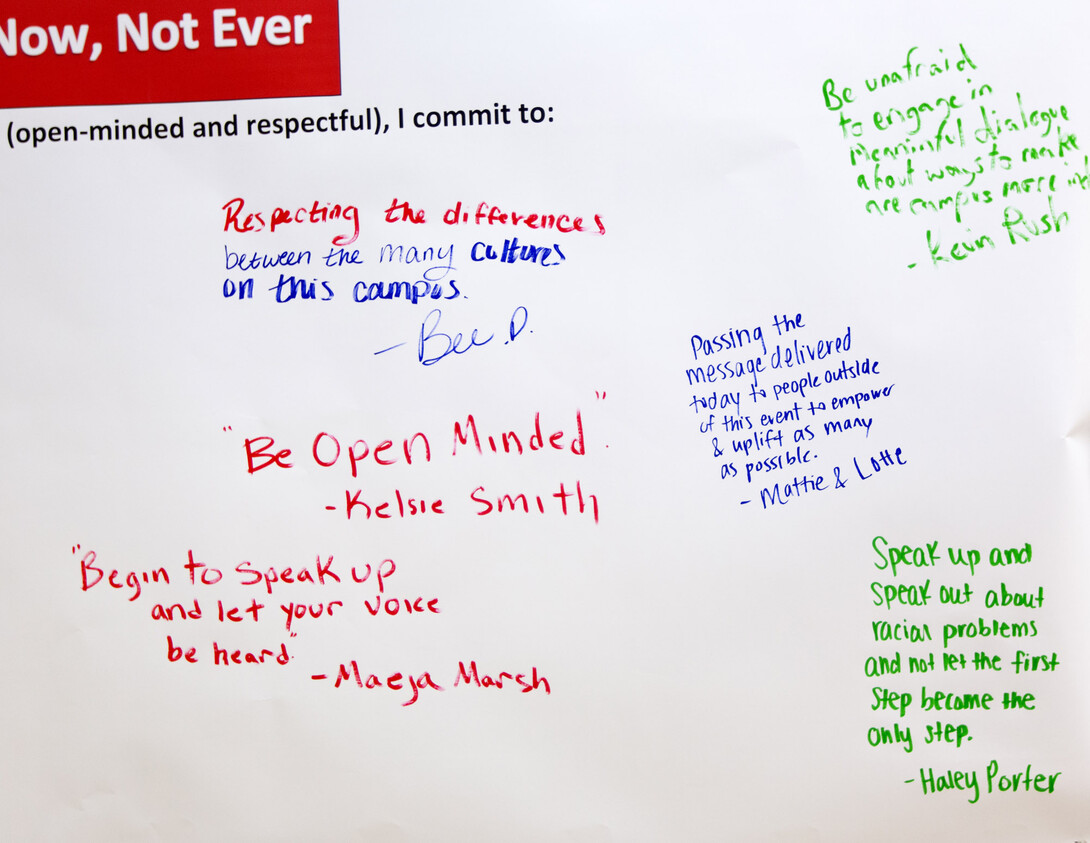 Now, Not Ever
(open-minded and respectful), I commit to:
Be unafraid
to engage in
Meaninful dialogue
about ways to make
are campus more
- Kevin Rush
Respecting the differences
between the many cultures
on this campus.
- Bee D.
Passing the
message delivered
today to people outside
of this event to empower
& uplift as many
as possible.
- Mattie & Lotte
"Be Open Minded".
- Kelsie Smith
"Begin to Speak up
and let your voice
be heard"
- Maeja Marsh
Speak up and
speak out about
racial problems
and not let the first
step become the
only step.
- Haley Porter